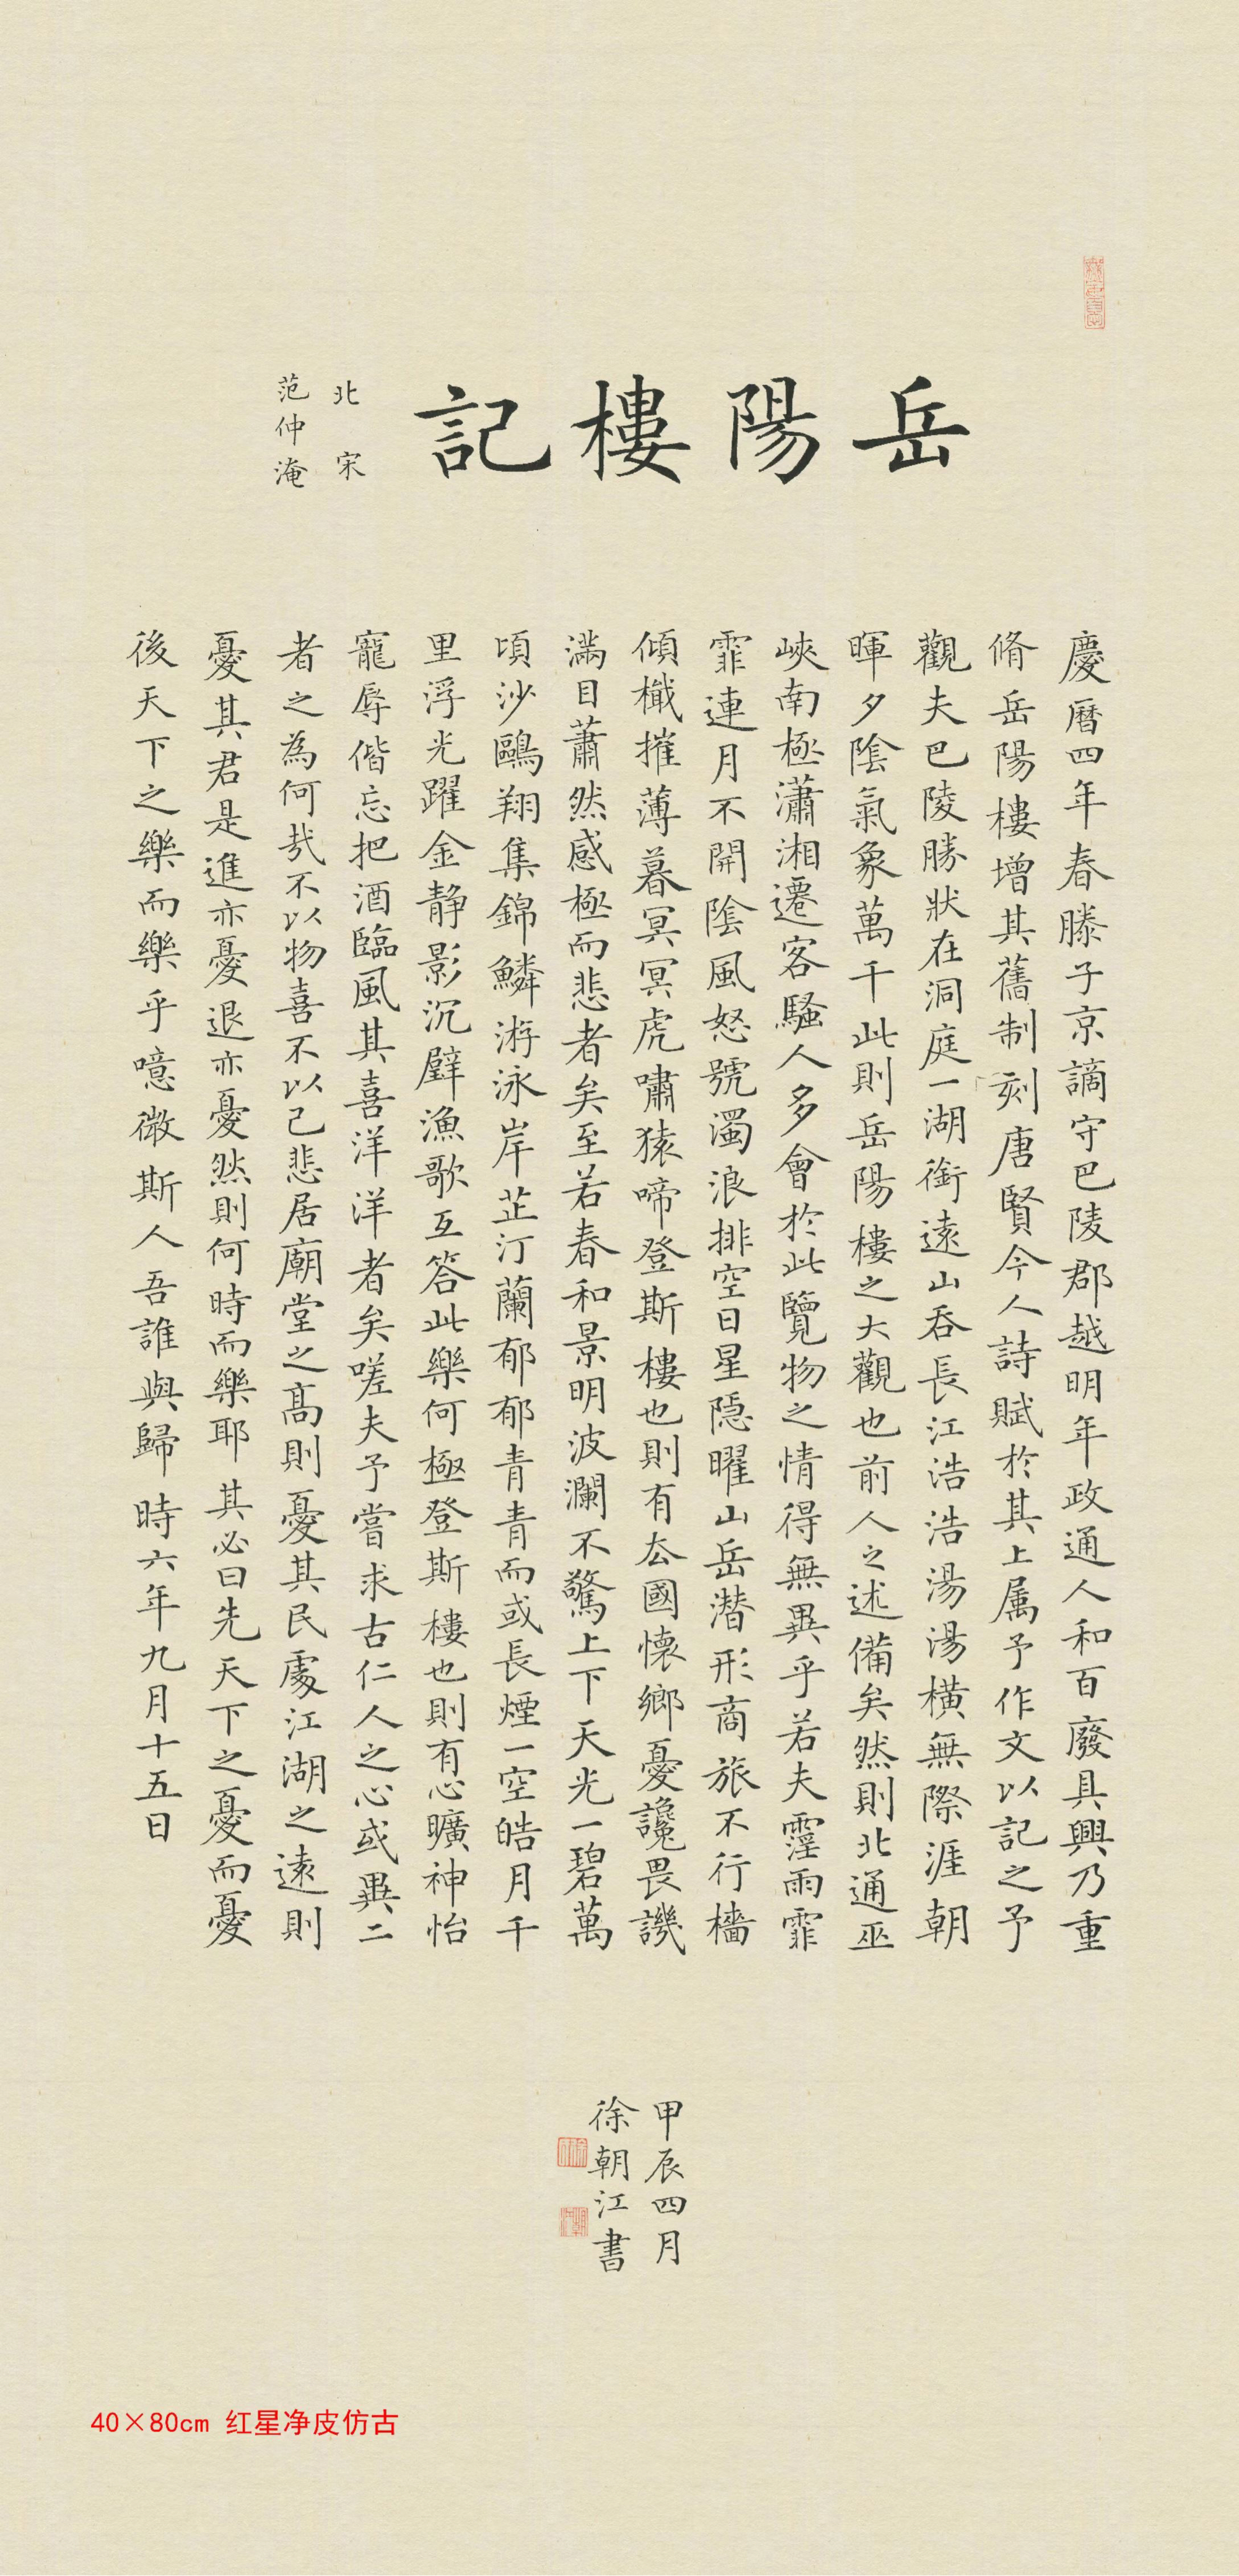 岳陽樓記
北宋
范仲淹
慶曆四年春滕子京謫守巴陵郡越明年政通人和百廢具興乃重
脩岳陽樓增其舊制刻唐賢今人詩賦於其上属予作文以記之予
觀夫巴陵勝狀在洞庭一湖銜遠山吞長江浩浩湯湯橫無際涯朝
暉夕陰氣象萬千此則岳陽樓之大觀也前人之述備矣然則北通巫
峽南極瀟湘遷客騷人多會於此覽物之情得無異乎若夫霪雨霏
霏連月不開陰風怒號濁浪排空日星隱曜山岳潛形商旅不行檣
傾檝摧薄暮冥冥虎嘯猿啼登斯樓也則有去國懷鄉憂讒畏譏
滿目蕭然感極而悲者矣至若春和景明波瀾不驚上下天光一碧萬
頃沙鷗翔集錦鱗游泳岸芷汀蘭郁郁青青而或長煙一空皓月千
里浮光躍金静影沉璧漁歌互答此樂何極登斯樓也則有心曠神怡
寵辱偕忘把酒臨風其喜洋洋者矣嗟夫予嘗求古仁人之心或異二
者之為何哉不以物喜不以己悲居廟堂之高則憂其民處江湖之遠則
憂其君是進亦憂退亦憂然則何時而樂耶其必曰先天下之憂而憂
後天下之樂而樂乎噫微斯人吾誰與歸時六年九月十五日
甲辰四月
徐朝江書
40×80cm 红星净皮仿古